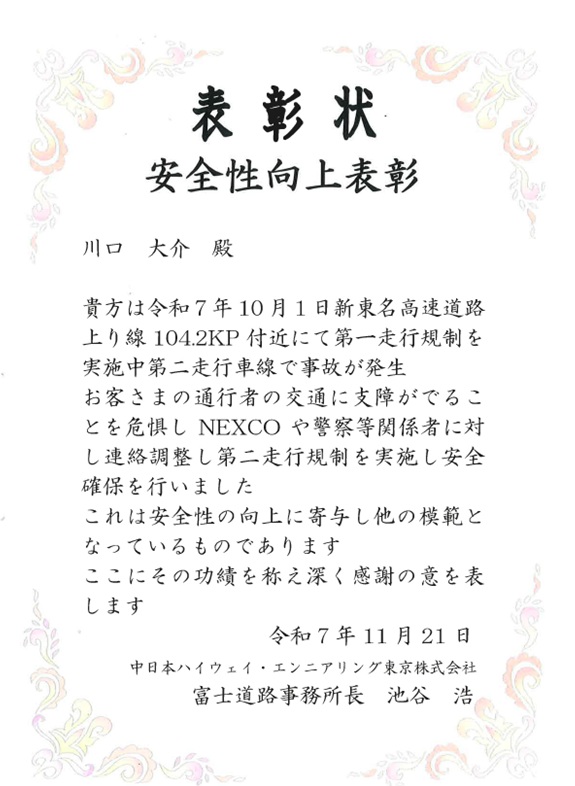 表彰状
安全性向上表彰
川口　大介　殿
貴方は令和７年10月１日新東名高速道路
上り線104.2KP付近にて第一走行規制を
実施中第二走行車線で事故が発生
お客さまの通行者の交通に支障がでるこ
とを危惧しNEXCOや警察等関係者に対
し連絡調整し第二走行規制を実施し安全
確保を行いました
これは安全性の向上に寄与し他の模範と
なっているものであります
ここにその功績を称え深く感謝の意を表
します
令和７年11月21日
中日本ハイウェイ・エンニアリング東京株式会社
富士道路事務所長　池谷　浩